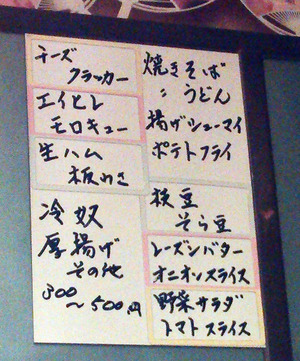 焼きそば
〃 うどん
揚げシューマイ
ポテトフライ
枝豆
そら豆
レーズンバター
オニオンスライス
野菜サラダ
トマトスライス
チーズ
クラッカー
エイヒレ
モロキュー
生ハム
板わさ
冷奴
厚揚げ
その他
300
〜500円